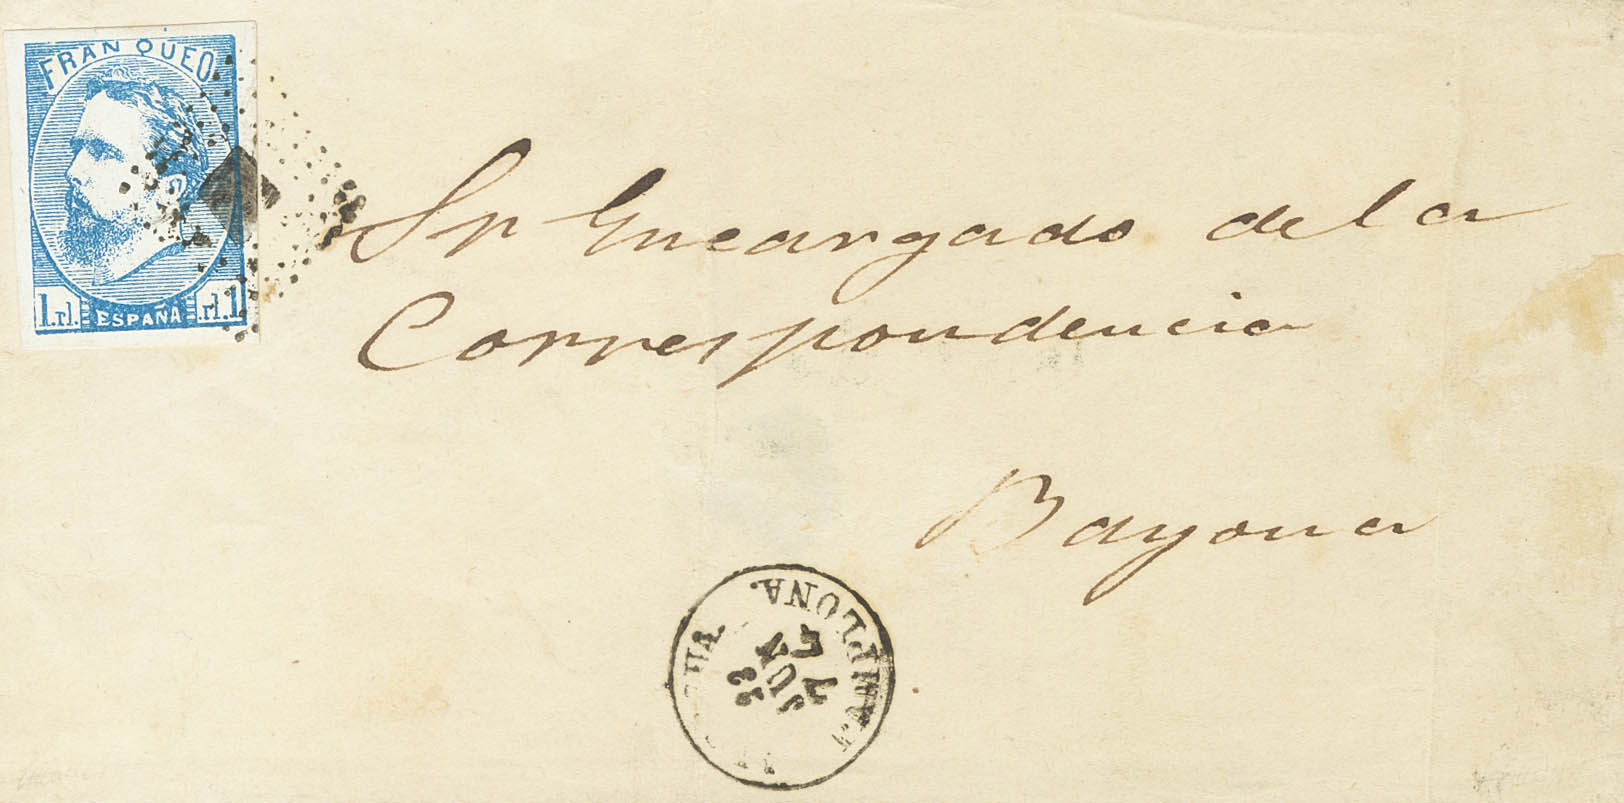 FRANQUEO
1.rl. ESPAÑA .rl.1
Sr Encargado de la
Correspondencia
Bayona
PAMPLONA.
JUL
74